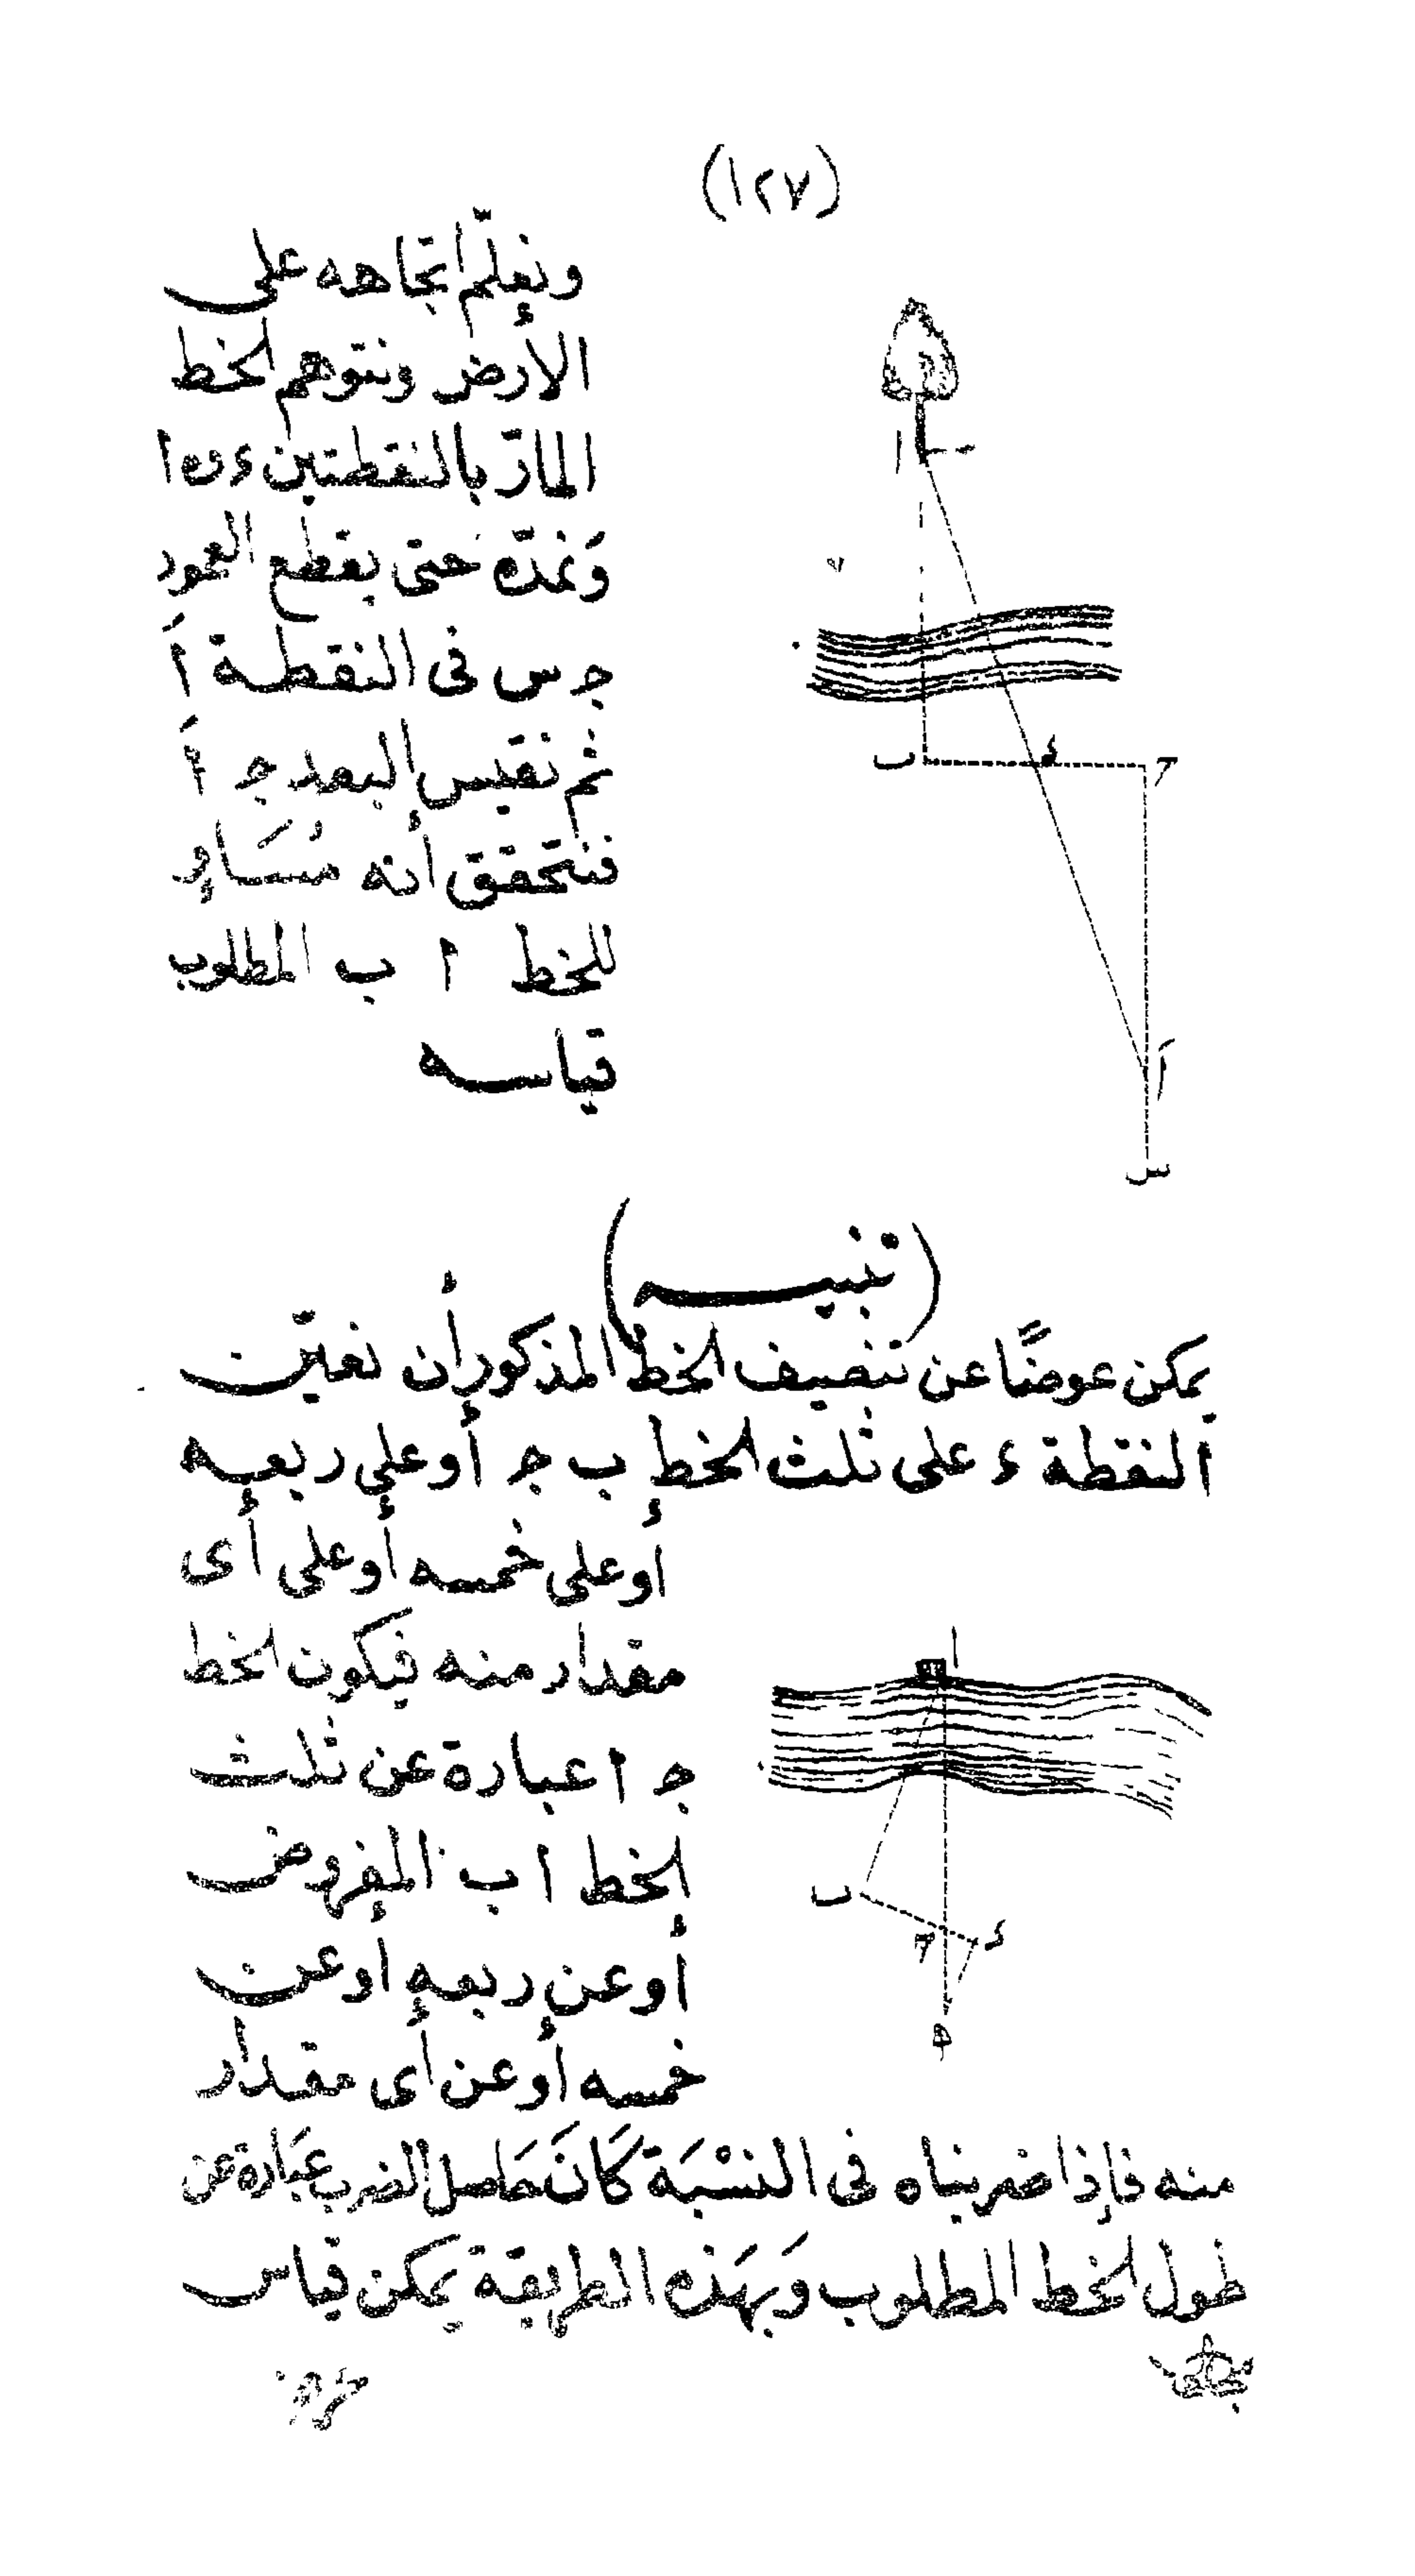 (١٢٧)
ونعلّم اتجاهه على
الأرض ونتوهم الخط
المارّ بالنقطتين ء و ا
وَنمدّه حتى يقطع العمود
جـ س فى النقطة اَ
ثم نقيس البعد جـ اَ
فنتحقق أنه مُسَاوٍ
للخط ا ب المطلوب
قياسه
ا
ب
ء
جـ
اَ
س
(تنبيه)
يمكن عوضًا عن تنصيف الخط المذكور أن نعيّن
النقطة ء على ثلث الخط ب جـ أو على ربعه
أو على خمسه أو على أى
مقدار منه فيكون الخط
جـ ا عبارة عن ثلث
الخط ا ب المفروض
أو عن ربعه أو عن
خمسه أو عن أى مقدار
ا
ب
جـ
ء
ه
منه فإذا ضربناه فى النسْبَة كَانَ حَاصل الضرب عبَارة عن
طول الخط المطلوب وَبهَذه الطريقة يمكن قياس